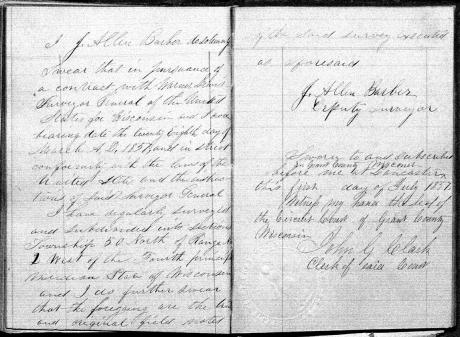 I J. Allen Barber do solemnly
swear that in pursuance of
a contract with Warner Lewis
Surveyor General of the United
States for Wisconsin and Iowa
bearing date the twenty eighth day of
March A.D. 1857, and in strict
conformity with the laws of the
United State and the instruc
tions of said Surveyor General
I have regularly surveyed
and subdivided into sections
Township 50 North of Range No
2 West of the Fourth principal
Meridian State of Wisconsin
and I do further swear
that the foregoing are the true
and original field notes
of the said survey executed
as aforesaid
J. Allen Barber
Deputy Surveyor
Sworn to and subscribed
in Grant County Wisconsin
before me at Lancaster
this first day of July 1857.
Witness my hand & Seal of
the Circuit Court of Grant County
Wisconsin
John G Clark
Clerk of said Court